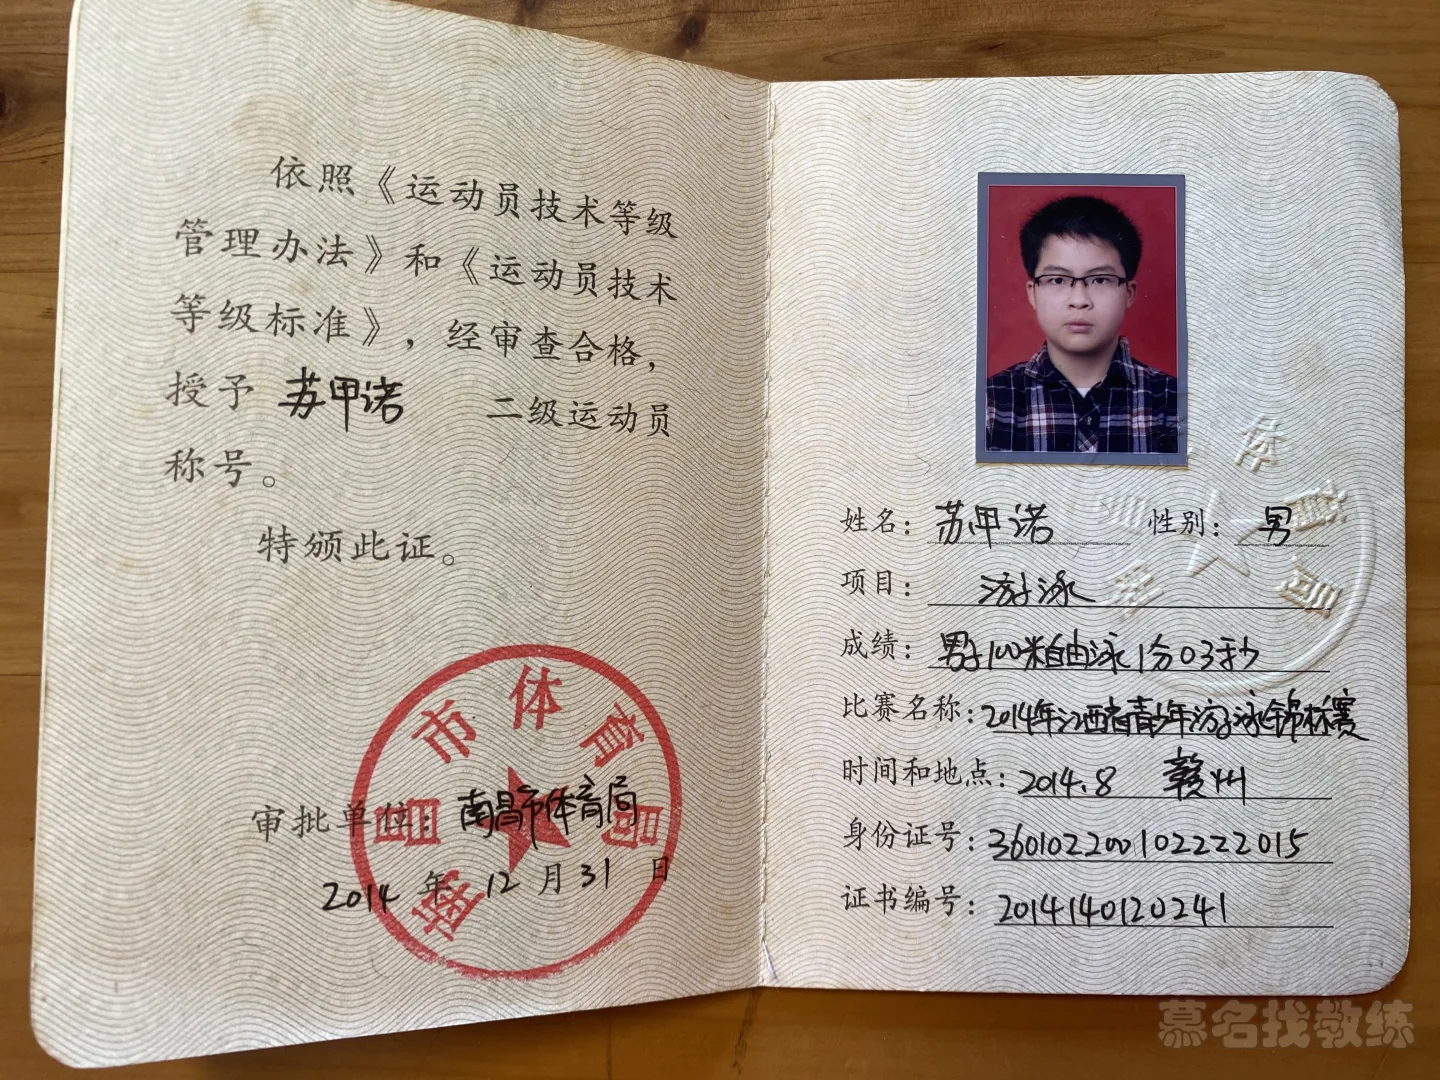 依照《运动员技术等级
管理办法》和《运动员技术
等级标准》，经审查合格，
授予 苏甲诺 二级运动员
称号。
特颁此证。
南昌市体育局
审批单位：南昌市体育局
2014 年 12 月 31 日
体育局
姓名：苏甲诺 性别：男
项目：游泳
成绩：男子100米自由泳1分03秒
比赛名称：2014年江西省青少年游泳锦标赛
时间和地点：2014.8 赣州
身份证号：360102200102222015
证书编号：2014140120241
慕名找教练